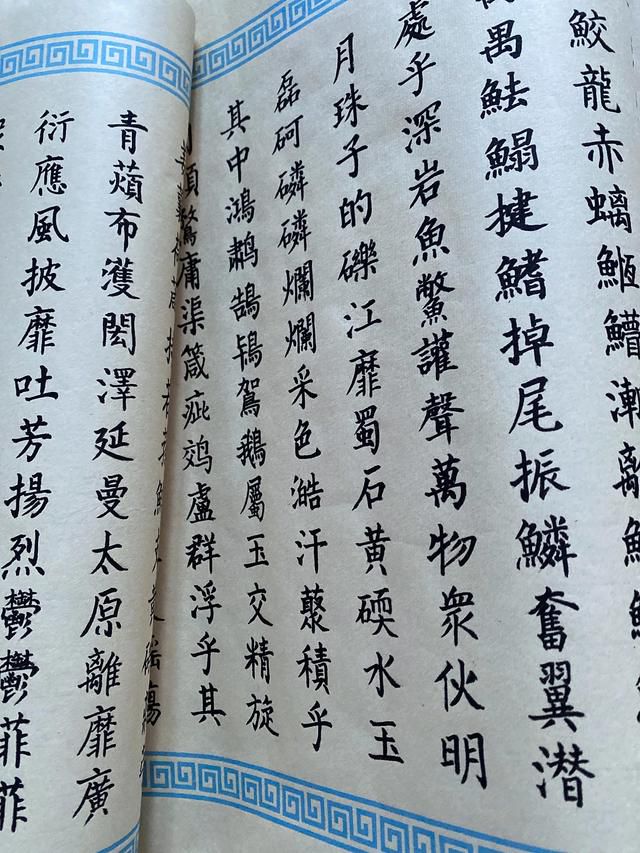 鮫龍赤螭漸離
禺魼鰨揵鰭掉尾振鱗奮翼潜
處乎深岩魚鱉讙聲萬物衆伙明
月珠子的礫江靡蜀石黃碝水玉
磊砢磷磷爛爛采色澔汗藂積乎
其中鴻鷫鵠鴇鴐鵝屬玉交精旋
煩鶩庸渠箴疵鵁盧群浮乎其
青薠布濩閎澤延曼太原離靡廣
衍應風披靡吐芳揚烈鬱鬱菲菲